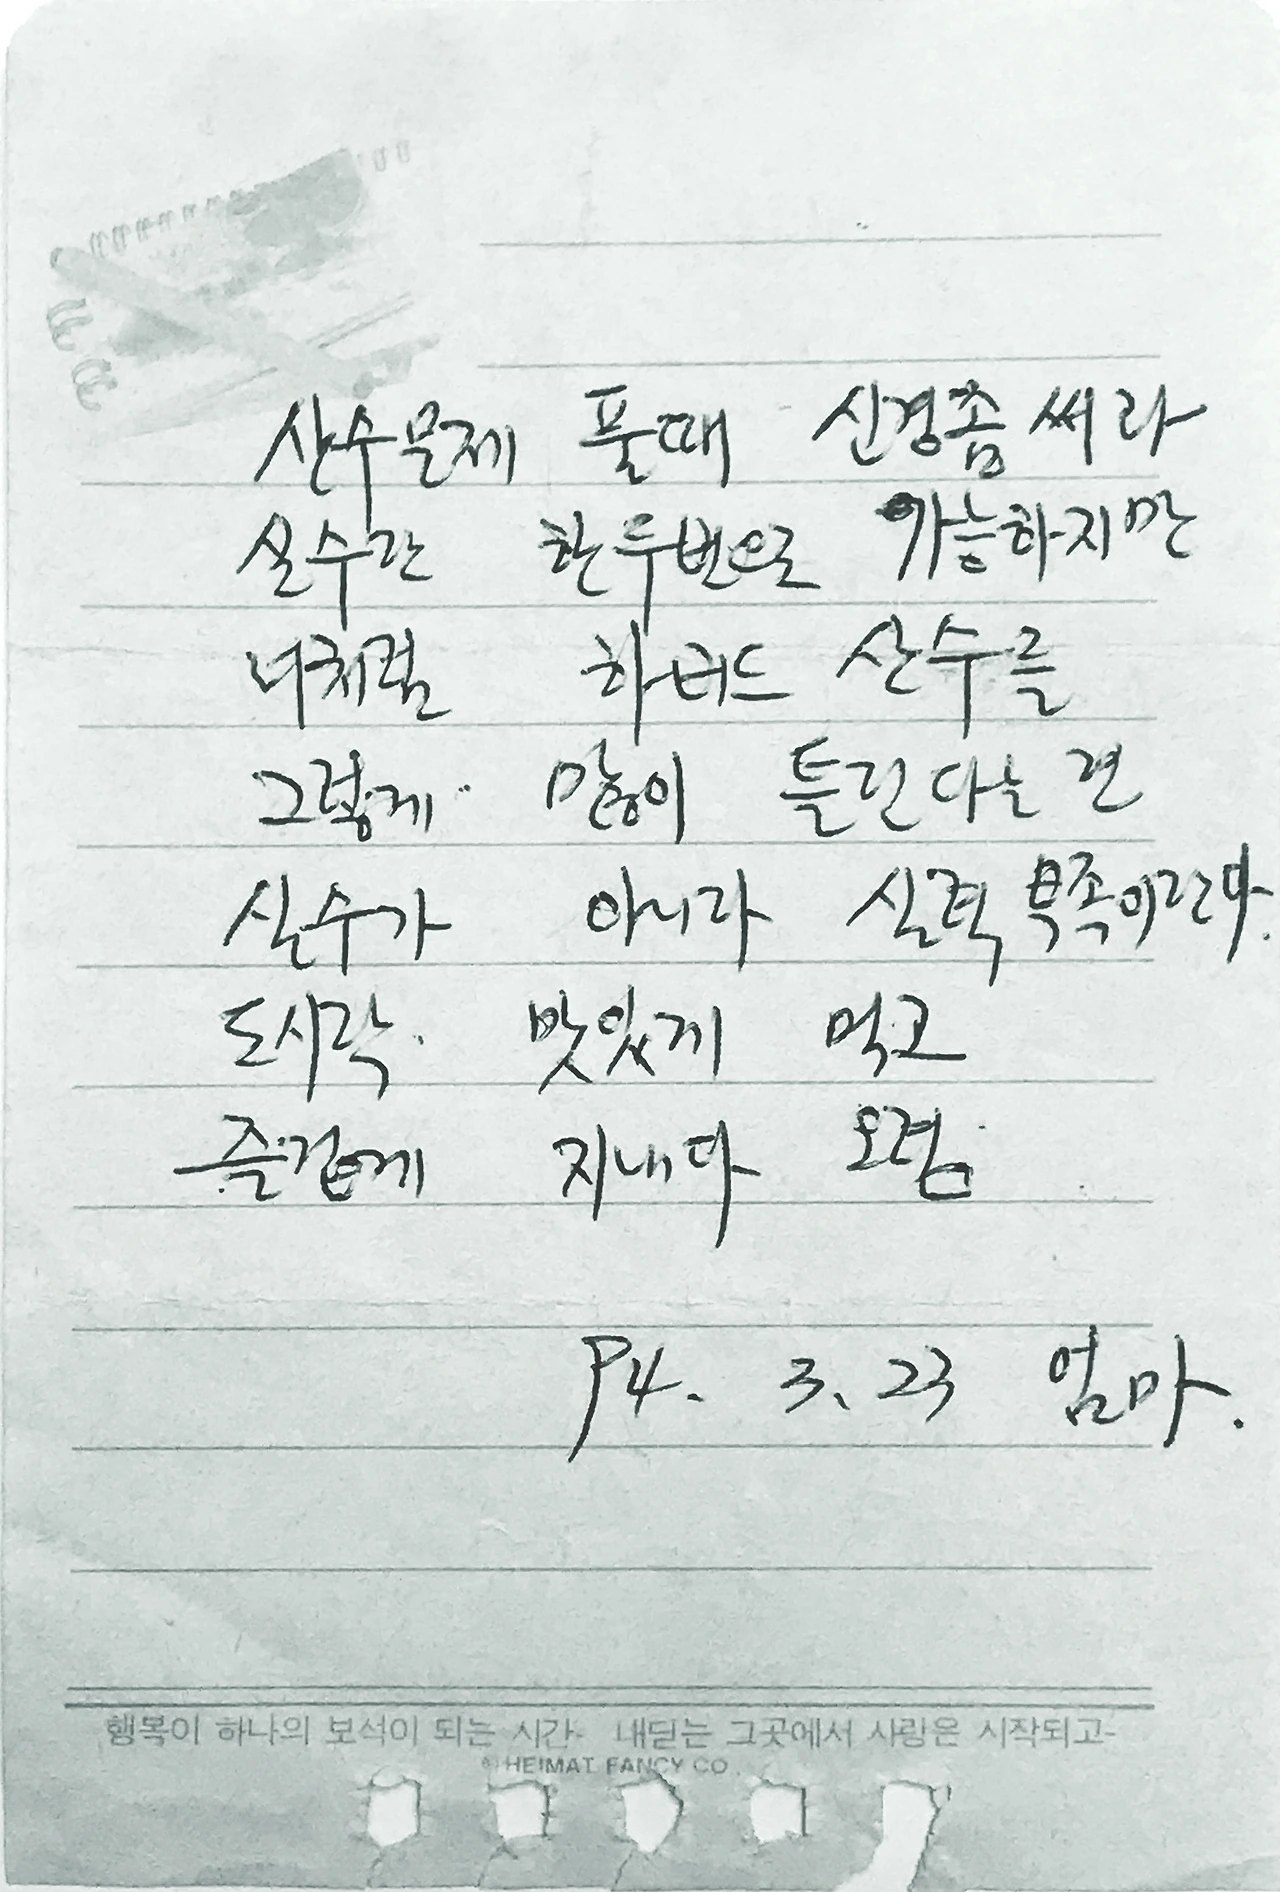 산수문제 풀때 신경좀 써라
실수란 한두번으로 가능하지만
너처럼 하버드 산수를
그렇게 많이 틀린다는건
실수가 아니라 실력부족이란다.
도시락 맛있게 먹고
즐겁게 지내다 오렴
94. 3. 23 엄마.
행복이 하나의 보석이 되는 시간- 내딛는 그곳에서 사랑은 시작되고-
©HEIMAT FANCY CO.